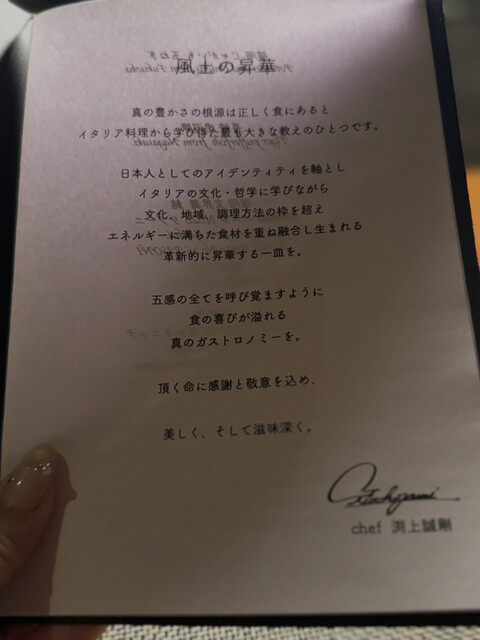 風土の昇華
真の豊かさの根源は正しく食にあると
イタリア料理から学び得た最も大きな教えのひとつです。
日本人としてのアイデンティティを軸とし
イタリアの文化・哲学に学びながら
文化、地域、調理方法の枠を超え
エネルギーに満ちた食材を重ね融合し生まれる
革新的に昇華する一皿を。
五感の全てを呼び覚ますように
食の喜びが溢れる
真のガストロノミーを。
頂く命に感謝と敬意を込め、
美しく、そして滋味深く。
chef 渕上誠剛